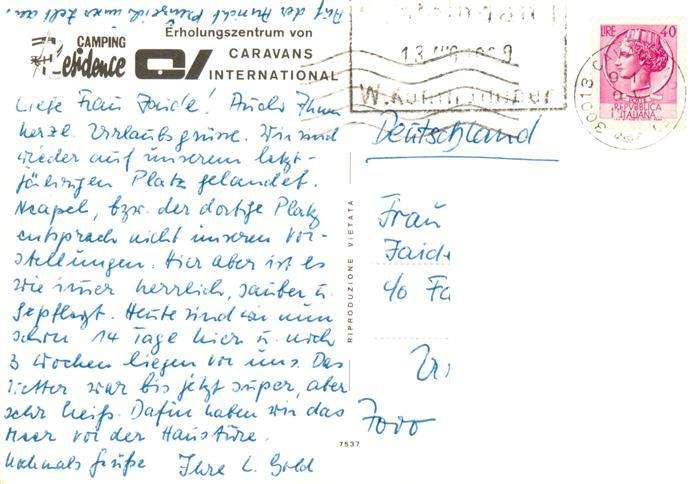 Auf der Ansicht kreuze ich unser Zelt an.
CAMPING
Residence
Erholungszentrum von
CARAVANS
INTERNATIONAL
Liebe Frau Jaide! Auch Ihnen
herzl. Urlaubsgrüsse. Wir sind
wieder auf unserem letzt-
jährigen Platz gelandet.
Neapel, bzw. der dortige Platz
entsprach nicht unseren Vor-
stellungen. Hier aber ist es
wie immer herrlich, sauber u.
gepflegt. Heute sind wir nun
schon 14 Tage hier u. noch
3 Wochen liegen vor uns. Das
Wetter war bis jetzt super, aber
sehr heiß. Dafür haben wir das
Meer vor der Haustüre.
Nochmals Grüße Ihre L. Gold
RIPRODUZIONE VIETATA
7537
LIRE 40
REPVBBLICA
ITALIANA
30013
Deutschland
Frau
Jaid
c/o Fa